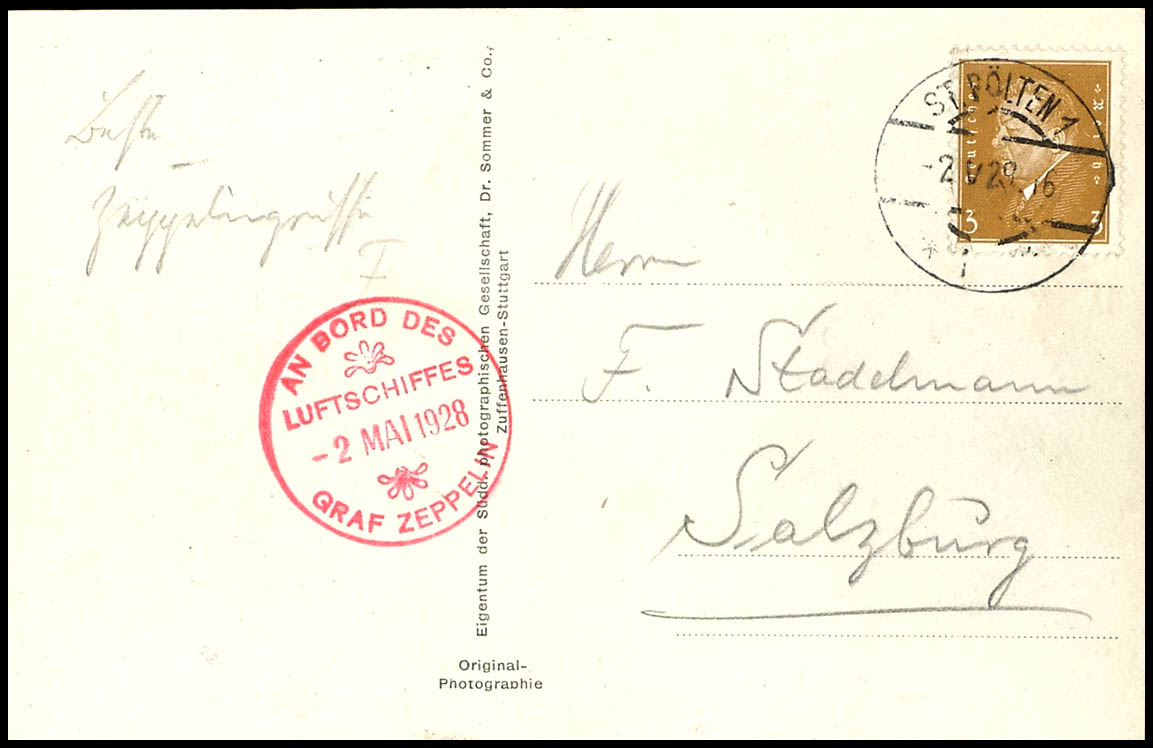 Beste
Zeppelingrüße
F
AN BORD DES
LUFTSCHIFFES
- 2 MAI 1928
GRAF ZEPPELIN
Eigentum der Südd. photographischen Gesellschaft, Dr. Sommer & Co.,
Zuffenhausen-Stuttgart
Original-
Photographie
Deutsches Reich
3 3
ST. PÖLTEN 1
-2 V 29 16
Herrn
F. Stadelmann
Salzburg